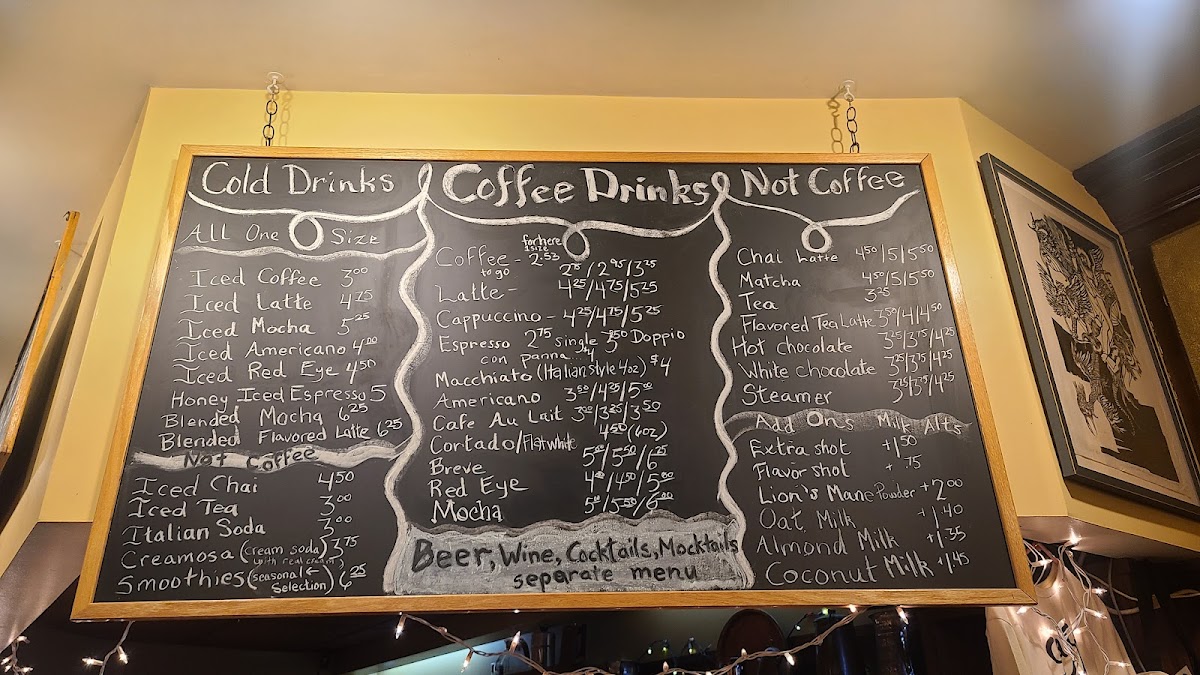 Cold Drinks
All One Size
Iced Coffee 3.00
Iced Latte 4.25
Iced Mocha 5.25
Iced Americano 4.00
Iced Red Eye 4.50
Honey Iced Espresso 5
Blended Mocha 6.25
Blended Flavored Latte 6.25
Not Coffee
Iced Chai 4.50
Iced Tea 3.00
Italian Soda 3.00
Creamosa (cream soda) 3.75
with real cream
Smoothies (seasonal ← selection) 6.25
Coffee Drinks
for here
1 size
Coffee - 2.53
to go 2.95/3.25
Latte - 4.25/4.75/5.25
Cappuccino - 4.25/4.75/5.25
Espresso 2.75 single 3.50 Doppio
con panna 4
Macchiato (Italian style 4oz) $4
Americano 3.50/4.25/5.00
Cafe Au Lait 3.00/3.25/3.50
Cortado/Flat white 4.50 (6oz)
Breve 5.00/5.50/6.25
Red Eye 4.00/4.50/5.00
Mocha 5.00/5.50/6.00
Beer, Wine, Cocktails, Mocktails
separate menu
Not Coffee
Chai Latte 4.50/5/5.50
Matcha 4.50/5/5.50
Tea 3.25
Flavored Tea Latte 3.50/4/4.50
Hot Chocolate 3.25/3.75/4.25
White chocolate 3.25/3.75/4.25
Steamer 3.25/3.75/4.25
Add Ons Milk Alts
Extra shot +1.50
Flavor shot +.75
Lion's Mane Powder +2.00
Oat Milk +1.40
Almond Milk +1.35
Coconut Milk +1.45